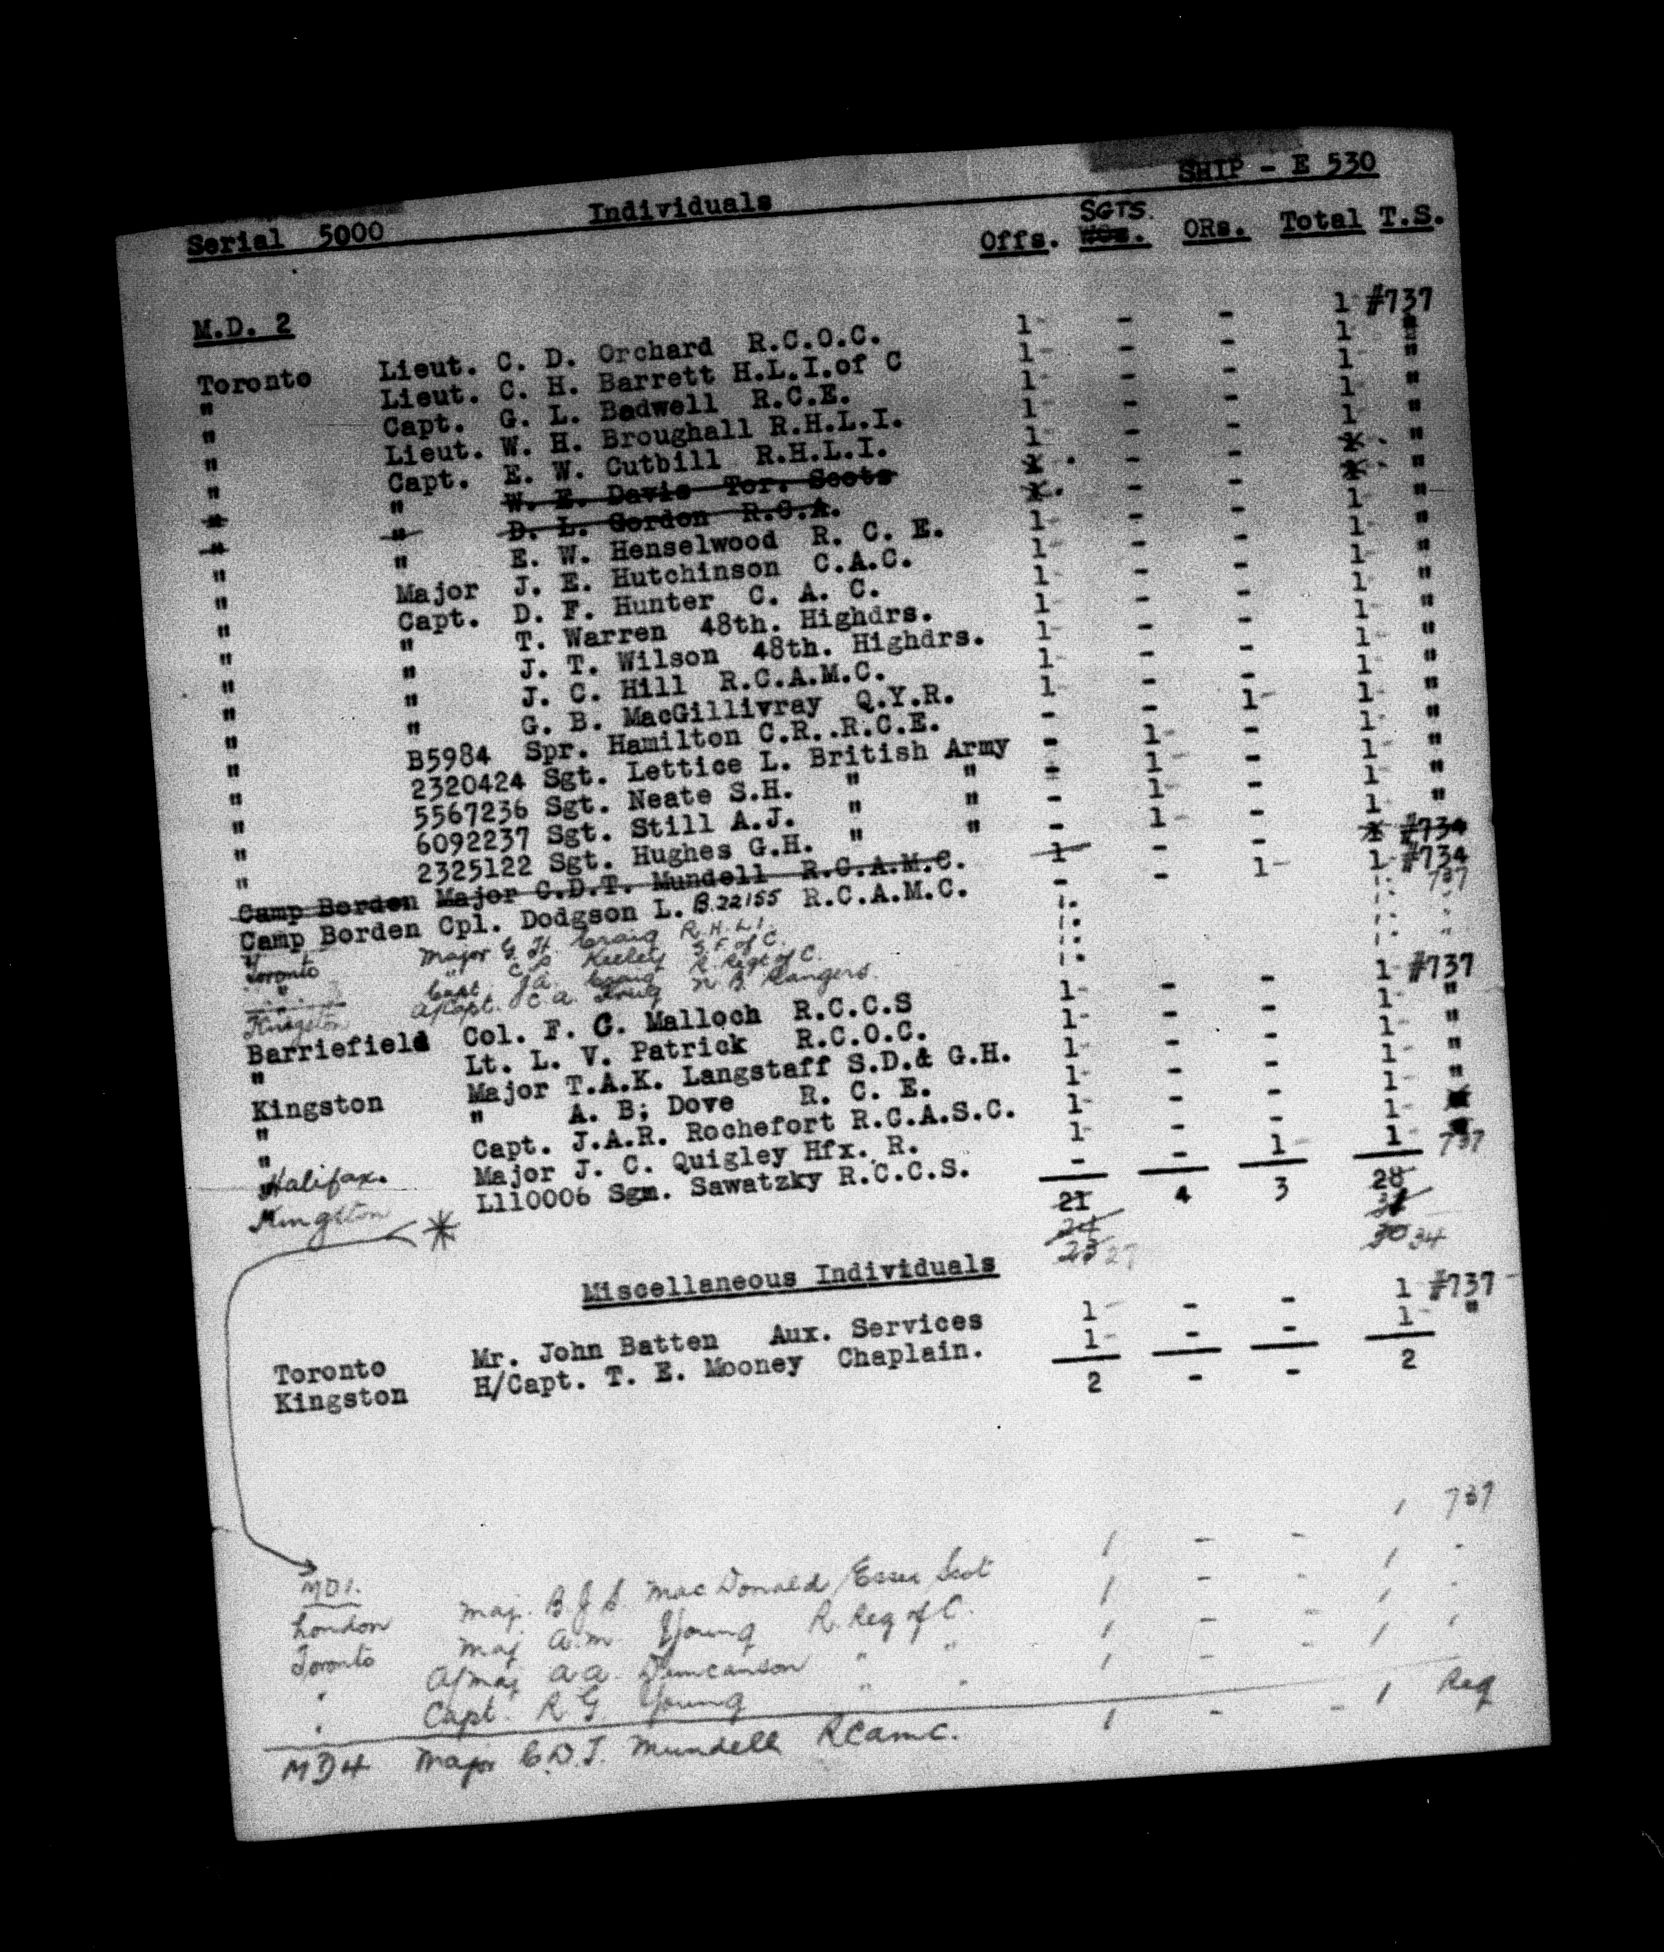 SHIP - E 530
Serial 5000 Individuals
SGTS.
Offs. WOs. ORs. Total T.S.
M.D. 2
Toronto Lieut. C. D. Orchard R.C.O.C. 1 - - 1 #737
" Lieut. C. H. Barrett H.L.I.of C 1 - - 1 "
" Capt. G. L. Badwell R.C.E. 1 - - 1 "
" Lieut. W. H. Broughall R.H.L.I. 1 - - 1 "
" Capt. E. W. Cutbill R.H.L.I. 1 - - 1 "
" " W. E. Davis Tor. Scots 1 - - 1 "
" " D. L. Gordon R.C.A. 1 - - 1 "
" " E. W. Henselwood R. C. E. 1 - - 1 "
" Major J. E. Hutchinson C.A.C. 1 - - 1 "
" Capt. D. F. Hunter C. A. C. 1 - - 1 "
" " T. Warren 48th. Highdrs. 1 - - 1 "
" " J. T. Wilson 48th. Highdrs. 1 - - 1 "
" " J. C. Hill R.C.A.M.C. 1 - - 1 "
" " G. B. MacGillivray Q.Y.R. 1 - - 1 "
" B5984 Spr. Hamilton C.R..R.C.E. - - 1 1 "
" 2320424 Sgt. Lettice L. British Army - 1 - 1 "
" 5567236 Sgt. Neate S.H. " " - 1 - 1 "
" 6092237 Sgt. Still A.J. " " - 1 - 1 "
" 2325122 Sgt. Hughes G.H. " " - 1 - 1 "
Camp Borden Major C.D.T. Mundell R.C.A.M.C. 1 - - 1 #734
Camp Borden Cpl. Dodgson L. B.22155 R.C.A.M.C. - - 1 1 #734
Toronto Major G. H. Craig R.H.L.I. 737
" " Keeley
" Capt. J A Craig R Regt of C.
Kingston A/Capt. C A N B Rangers
Barriefield Col. F. G. Malloch R.C.C.S 1 - - 1 #737
" Lt. L. V. Patrick R.C.O.C. 1 - - 1 "
Kingston Major T.A.K. Langstaff S.D.& G.H. 1 - - 1 "
" " A. B; Dove R. C. E. 1 - - 1 "
" Capt. J.A.R. Rochefort R.C.A.S.C. 1 - - 1
Halifax. Major J. C. Quigley Hfx. R. 1 - - 1
Kingston L110006 Sgm. Sawatzky R.C.C.S. - - 1 1 737
21 4 3 28
24 31
23 27 30 34
Miscellaneous Individuals
Toronto Mr. John Batten Aux. Services 1 - - 1 #737
Kingston H/Capt. T. E. Mooney Chaplain. 1 - - 1 "
2 - - 2
MD1.
London Maj. B J S MacDonald Essex Scot 1 - - 1 737
Toronto Maj A.M. Young R. Reg of C. 1 - - 1
" A/Maj A A. Duncanson " " 1 - - 1
" Capt. R G Young " " 1 - - 1
MD4 Major C.D.T. Mundell RCAMC. 1 - - 1 Reg